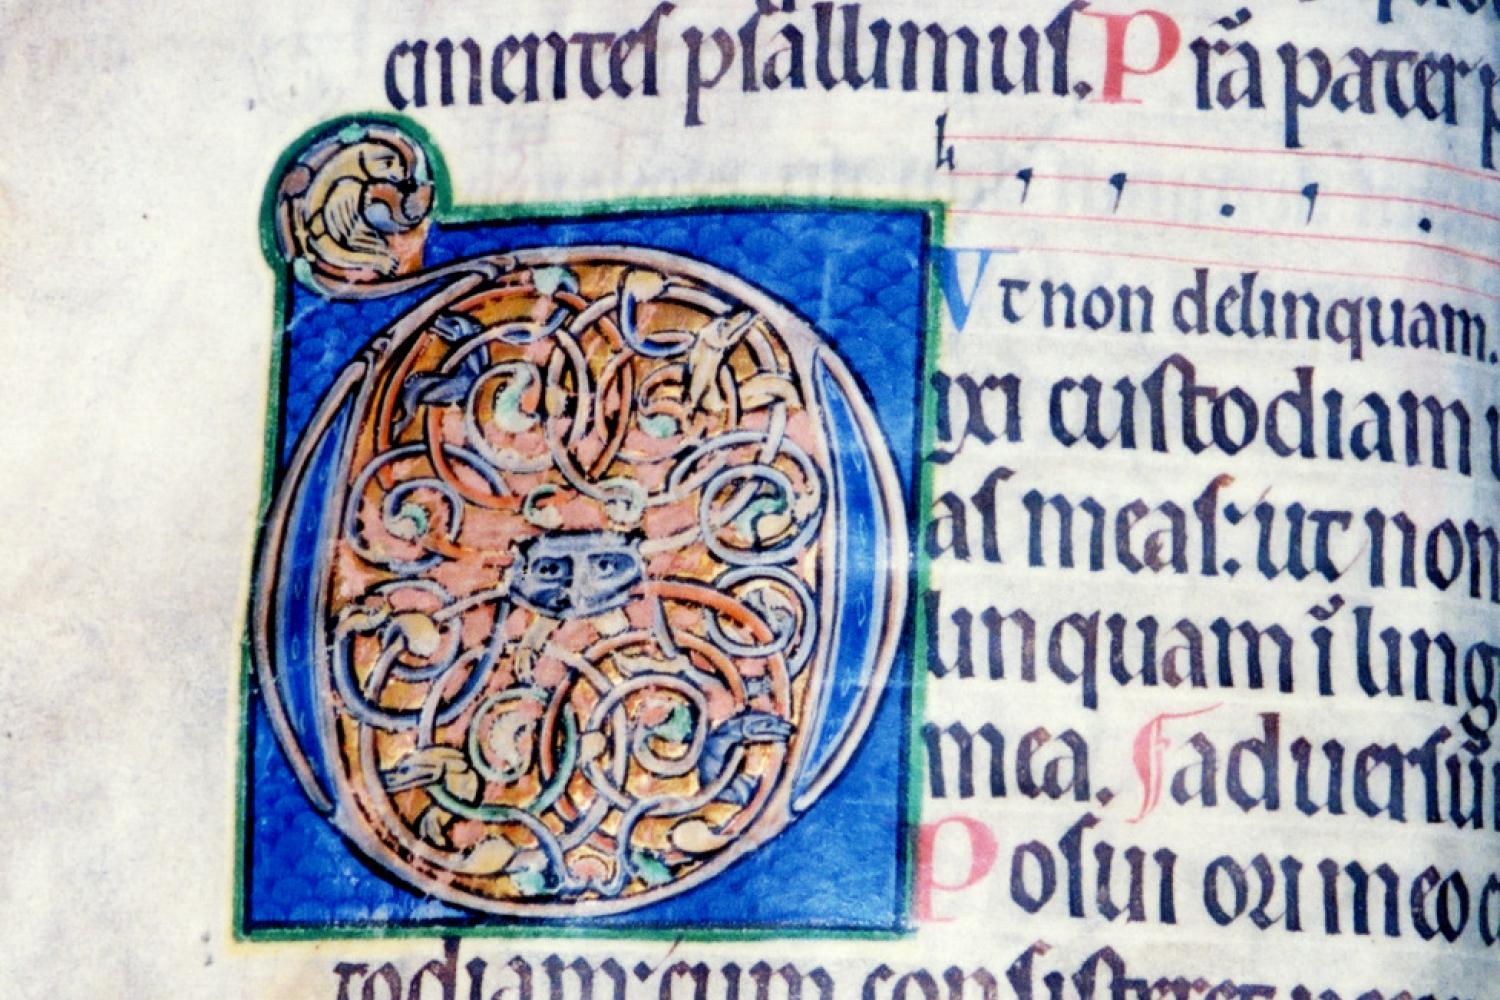 cinentes psallimus. P rā pater p
Vt non delinquam.
D ixi custodiam
as meas: ut non
linquam ī ling
mea. F aduersū
P osui ori meo c
todiam: cum consisteret